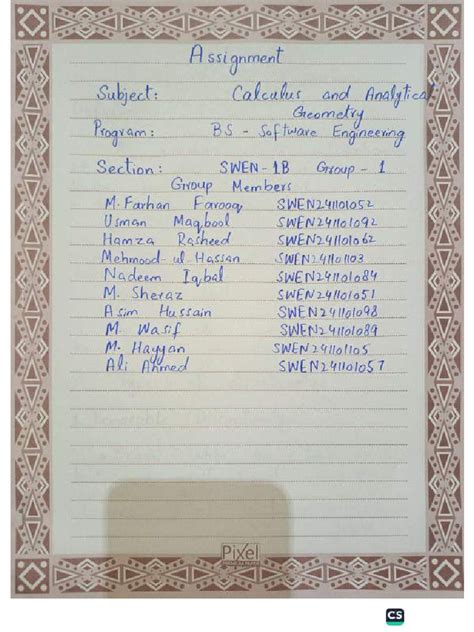 Assignment
Subject: Calculus and Analytical
Geometry
Program: BS - Software Engineering
Section: SWEN-1B Group - 1
Group Members
M. Farhan Farooq SWEN241101052
Usman Maqbool SWEN241101092
Hamza Rasheed SWEN241101062
Mehmood-ul-Hassan SWEN241101103
Nadeem Iqbal SWEN241101084
M. Sheraz SWEN241101051
Asim Hussain SWEN241101098
M. Wasif SWEN241101089
M. Hayyan SWEN241101105
Ali Ahmed SWEN241101057
Pixel
CS